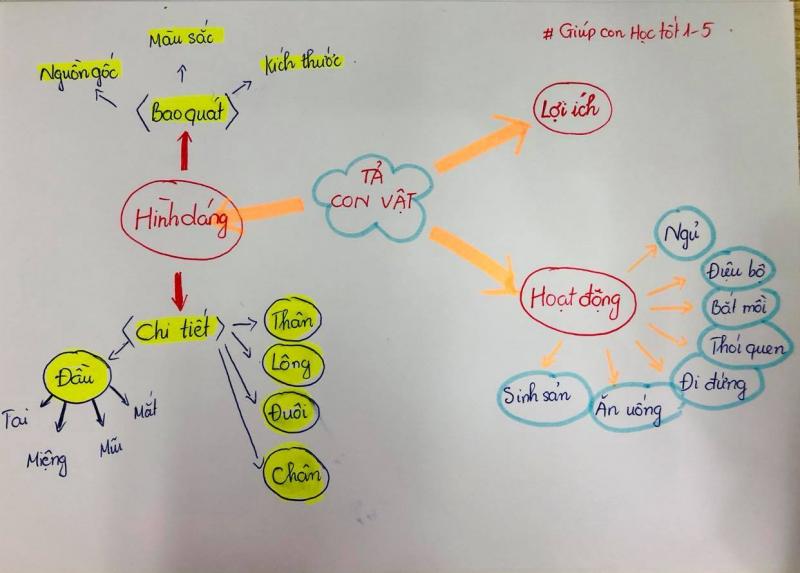 # Giúp con Học tốt 1-5
Màu sắc
Nguồn gốc
kích thước
Bao quát
Lợi ích
TẢ
CON VẬT
Hình dáng
Ngủ
Điệu bộ
Hoạt động
Bắt mồi
Thói quen
Đi đứng
Ăn uống
Sinh sản
Chi tiết
Thân
Lông
Đuôi
Chân
Đầu
Tai
Miệng
Mũi
Mắt